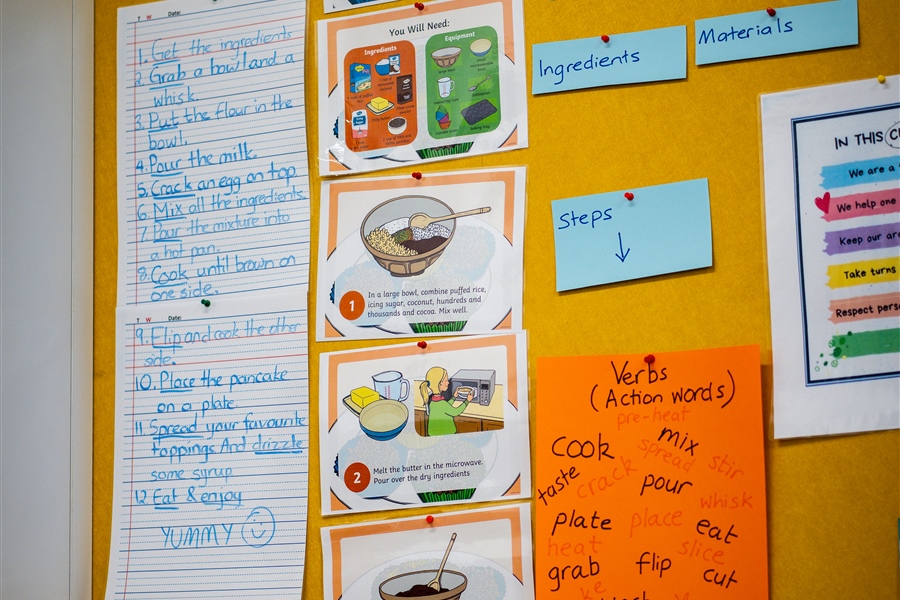 T W Date:
1. Get the ingredients
2. Grab a bowl and a
whisk
3. Put the flour in the
bowl.
4. Pour the milk.
5. Crack an egg on top
6. Mix all the ingredients
7. Pour the mixture into
a hot pan.
8. Cook until brown on
one side.
T W Date:
9. Flip and cook the other
side.
10. Place the pancake
on a plate
11 Spread your favourite
toppings. And drizzle
some syrup
12. Eat & enjoy
YUMMY
You Will Need:
Ingredients
Equipment
1
In a large bowl, combine puffed rice,
icing sugar, coconut, hundreds and
thousands and cocoa. Mix well.
2
Melt the butter in the microwave.
Pour over the dry ingredients
Ingredients
Materials
Steps
Verbs
(Action words)
pre-heat
cook
mix
spread
stir
taste
crack
pour
whisk
plate
place
eat
heat
slice
grab
flip
cut
IN THIS
We are a
We help one
Keep our
Take turns
Respect